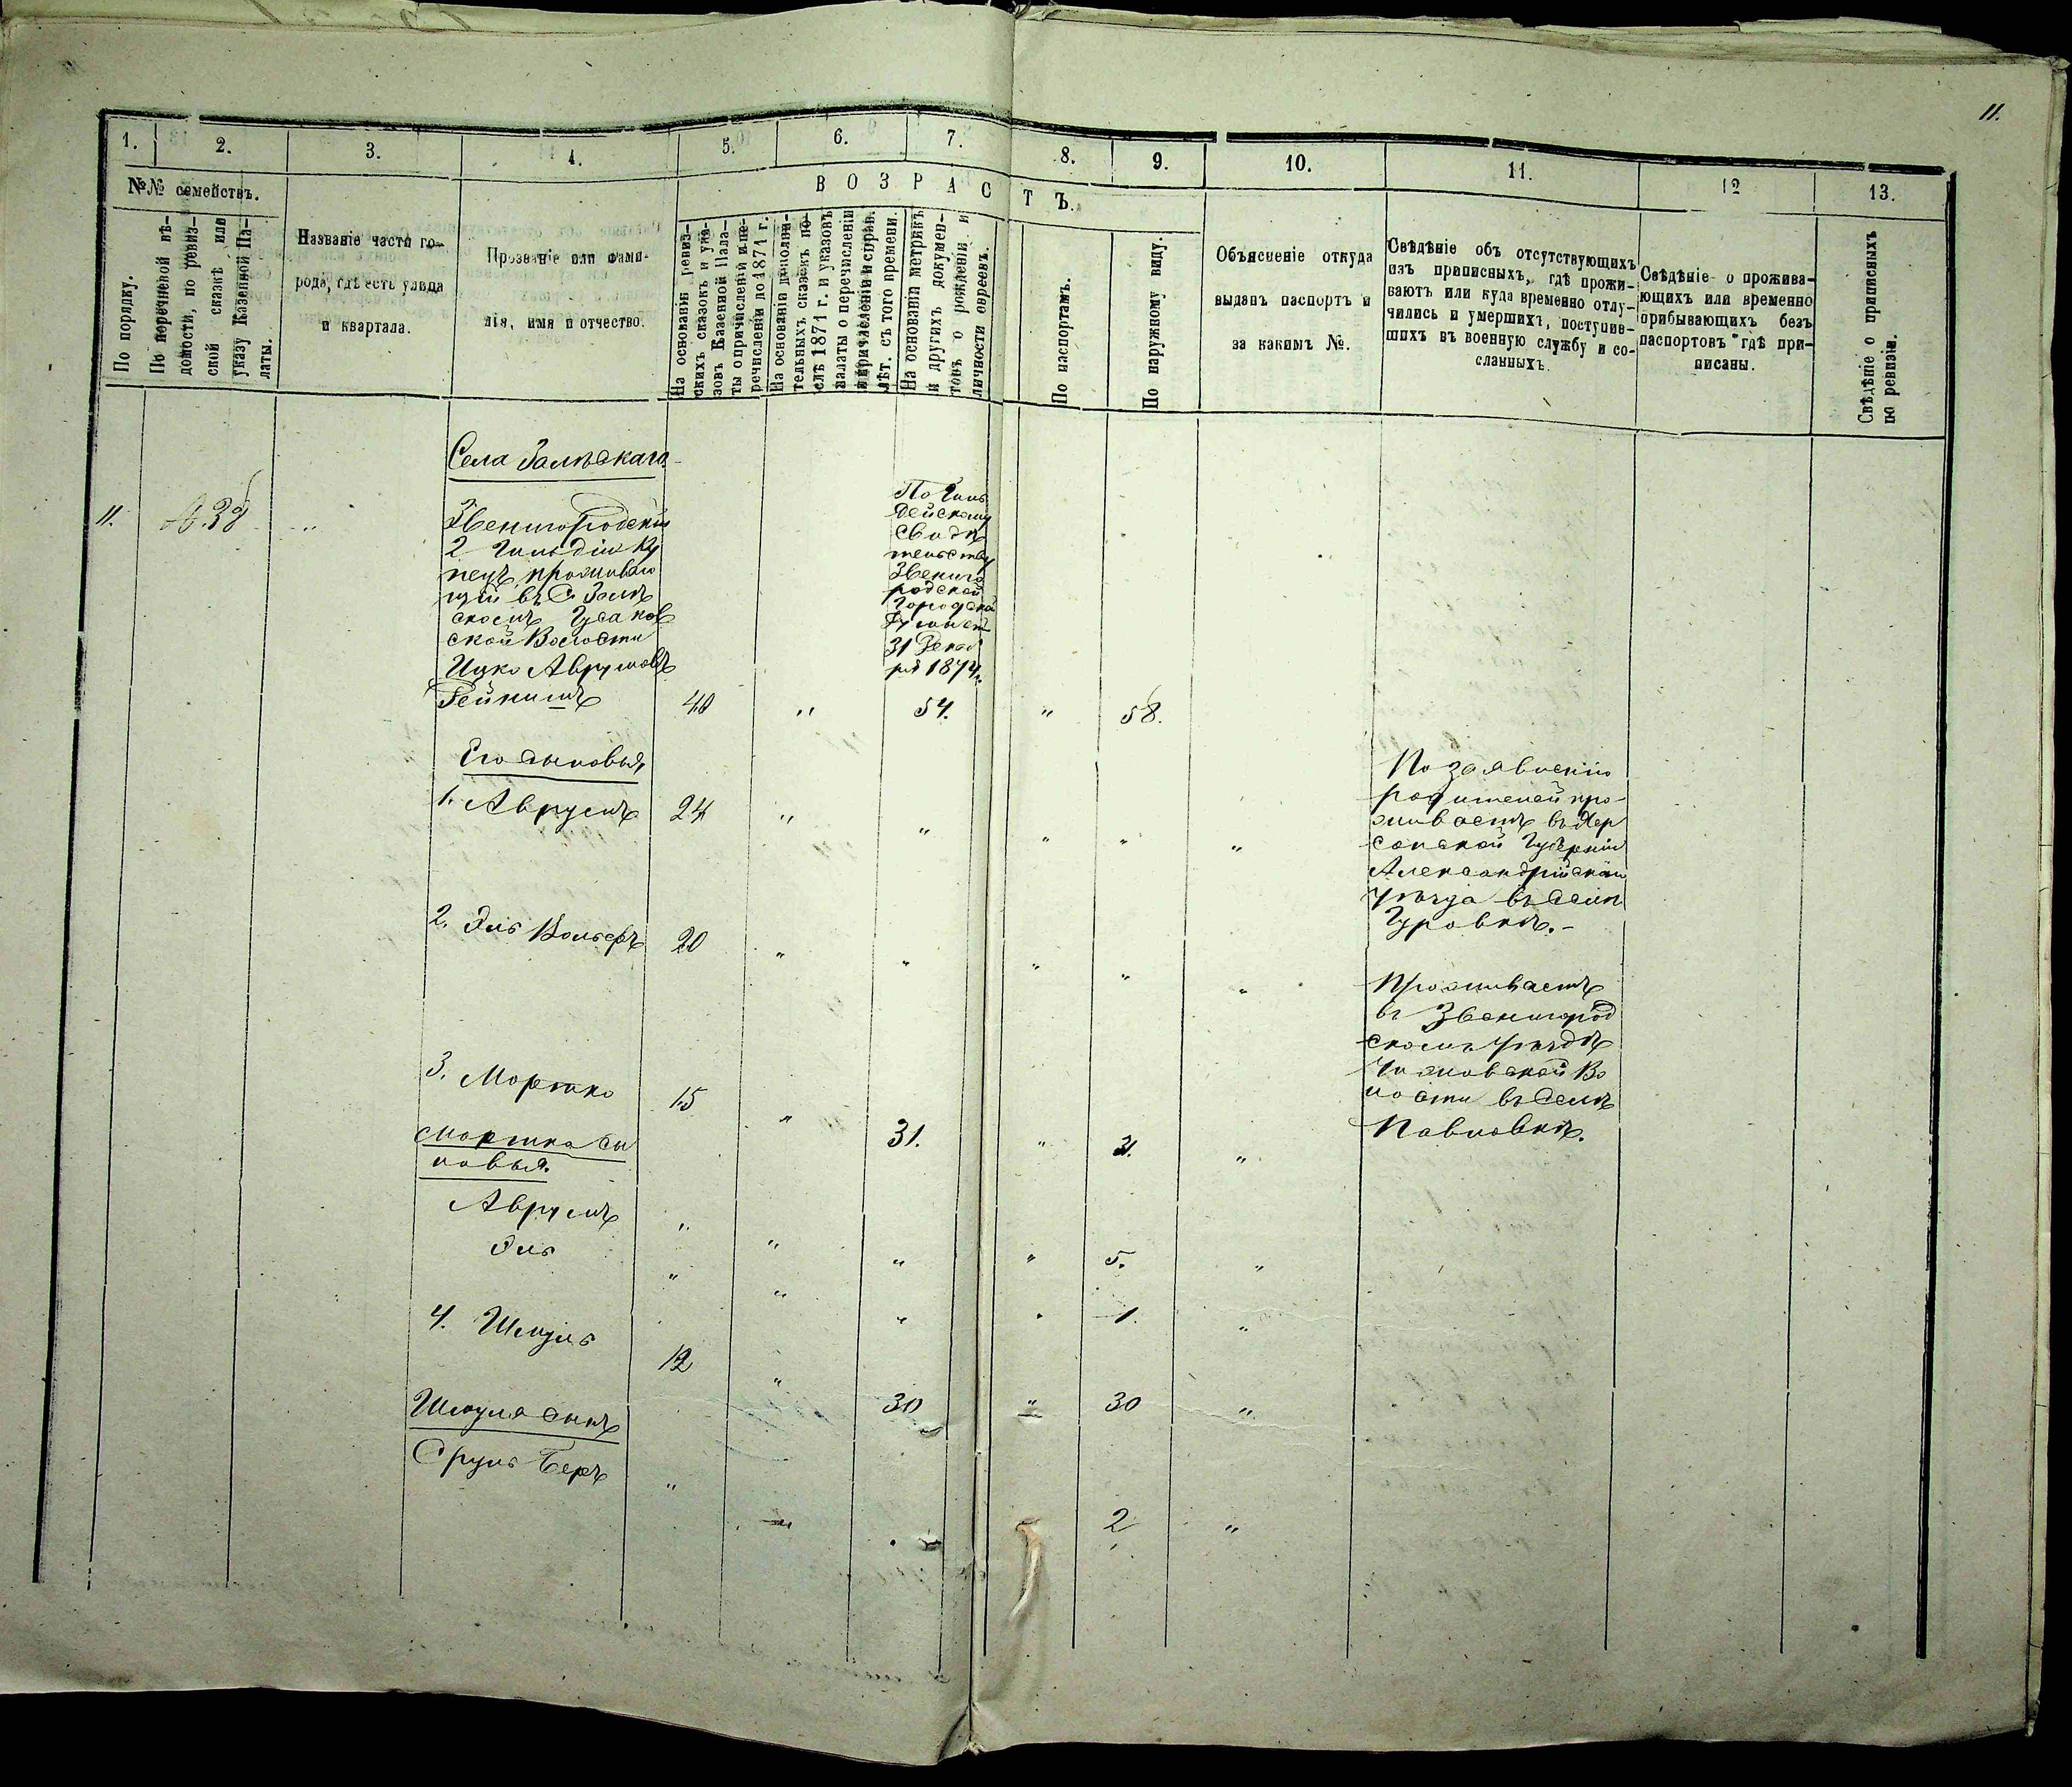 11.
1.
2.
3.
4.
5.
6.
7.
8.
9.
10.
11.
12
13.
№№ семействъ.
ВОЗРАСТЪ.
По порядку.
По перечневой вѣ-
домости, по ревиз-
ской сказкѣ или
указу Казенной Па-
латы.
Названіе части го-
рода, гдѣ есть улица
и квартала.
Прозваніе или фами-
лія, имя и отчество.
На основаніи ревиз-
скихъ сказокъ и ука-
зовъ Казенной Пала-
ты о причисленіи и пе-
речисленіи до 1871 г.
На основаніи дополни-
тельныхъ сказокъ по-
слѣ 1871 г. и указовъ
палаты о перечисленіи
и причисленіи и справ.
лѣт. съ того времени.
На основаніи метрикъ
и другихъ докумен-
товъ о рожденіи и
личности евреевъ.
По паспортамъ.
По наружному виду.
Объясненіе откуда
выданъ паспортъ и
за какимъ №.
Свѣдѣніе объ отсутствующихъ
изъ приписныхъ, гдѣ прожи-
ваютъ или куда временно отлу-
чились и умершихъ, поступив-
шихъ въ военную службу и со-
сланныхъ.
Свѣдѣніе о прожива-
ющихъ или временно
прибывающихъ безъ
паспортовъ гдѣ при-
писаны.
Свѣдѣніе о приписныхъ
по ревизіи.
Села Залѣскаго
11.
"
Звенигородскій
2 Гильдіи Ку
пецъ проживаю
щій въ С. Залѣ
скомъ Гусаков
ской Волости
Ицко Аврумовъ
Рейнишъ
40 " 54. " 58.
По Гиль
дейскому
Свидѣ
тельству
Звениго
родской
Городской
Думы от
31 Декаб
ря 1874 г.
Его сыновья,
1. Аврумъ 24 " " " " "
По заявленію
родителей про-
живаетъ въ Хер
сонской Губерніи
Александрійскаго
уѣзда въ селѣ
Гуровкѣ.-
2. Эль Вольфъ 20 " " " " "
Проживаетъ
въ Звенигород
скомъ уѣздѣ
Чижовской Во
лости въ селѣ
Павловкѣ.
3. Мортко 15 " 31. " 31. "
Мортка сы
новья.
Аврумъ " " " " 5. "
Эль " " " " 1. "
4. Шмуль 12 " 30 " 30 "
Шмуля сынъ
Сруль Беръ " " " 2 "